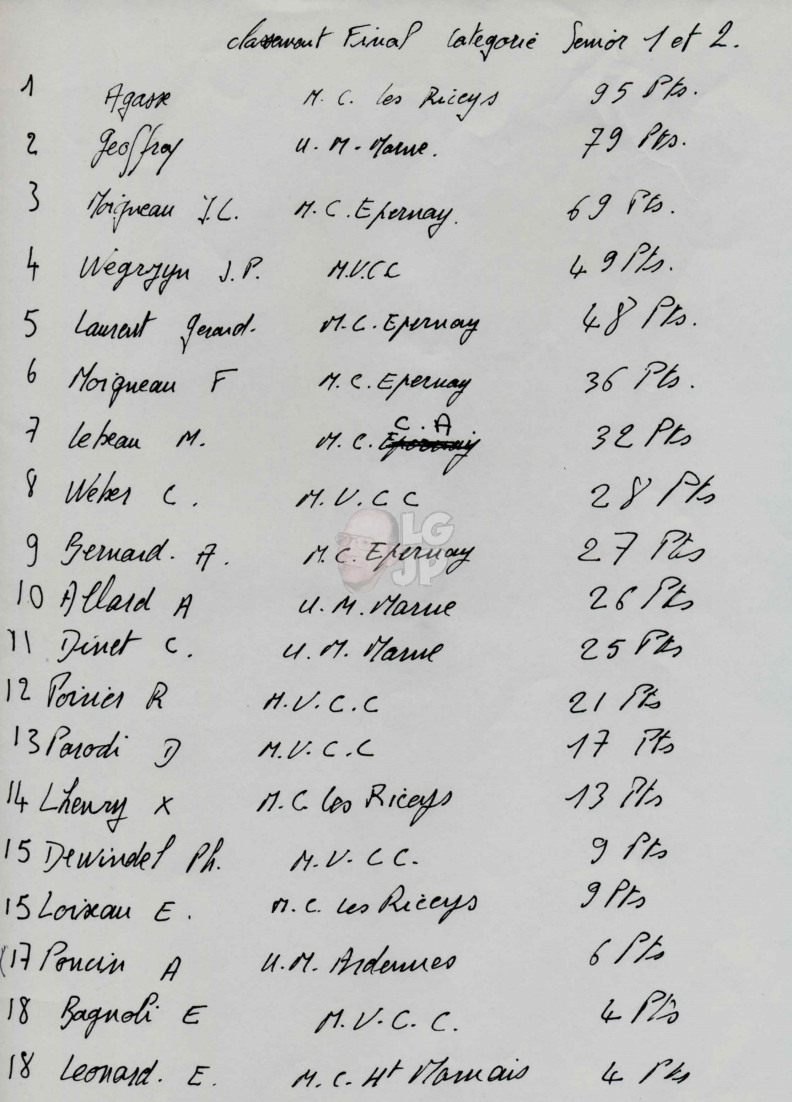 classement Final Categorie Senior 1 et 2.
1 Agasse M. C. les Riceys 95 Pts.
2 Geoffroy U. M. Marne. 79 Pts.
3 Moigneau J.L. M. C. Epernay. 69 Pts.
4 Wegrzyn J. P. M.V.C.C 49 Pts.
5 Laurent Gerard. M. C. Epernay 48 Pts.
6 Moigneau F M. C. Epernay 36 Pts.
7 Lebeau M. M. C. Epernay C. A 32 Pts
8 Weber C. M. V. C C 28 Pts
9 Bernard. A. M. C. Epernay 27 Pts
10 Allard A U. M. Marne 26 Pts
11 Dinet C. U. M. Marne 25 Pts
12 Poirier R M. V. C. C 21 Pts
13 Parodi D M. V. C. C 17 Pts
14 Lhenry X M. C. les Riceys 13 Pts
15 Dewindel Ph. M. V. C C. 9 Pts
15 Loixeau E. M. C. les Riceys 9 Pts
17 Poncin A U. M. Ardennes 6 Pts
18 Bagnoli E M. V. C. C. 4 Pts
18 Leonard. E. M. C. Ht Marnais 4 Pts
LG
JP